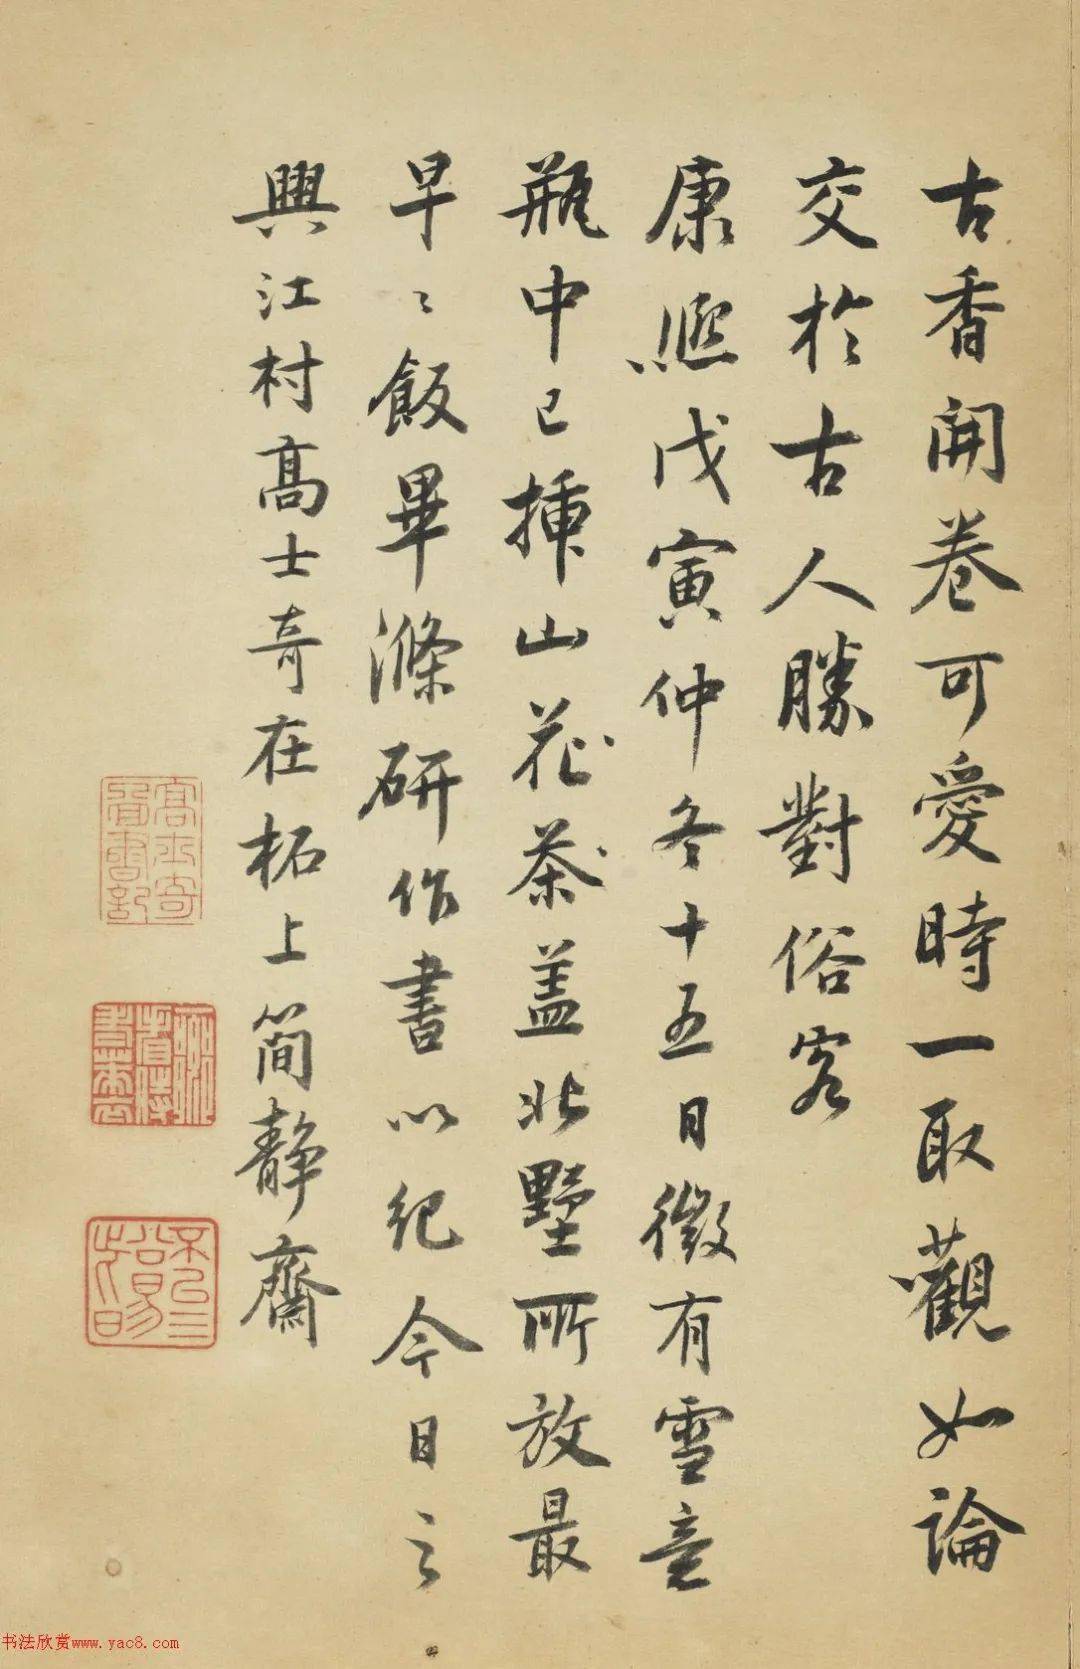 古香開卷可愛時一取觀如論
交於古人勝對俗客
康熙戊寅仲冬十五日微有雪意
瓶中已插山花茶蓋北墅所放最
早〻飯畢滌研作書以紀今日之
興江村高士奇在柘上簡靜齋
書法欣赏www.yac8.com